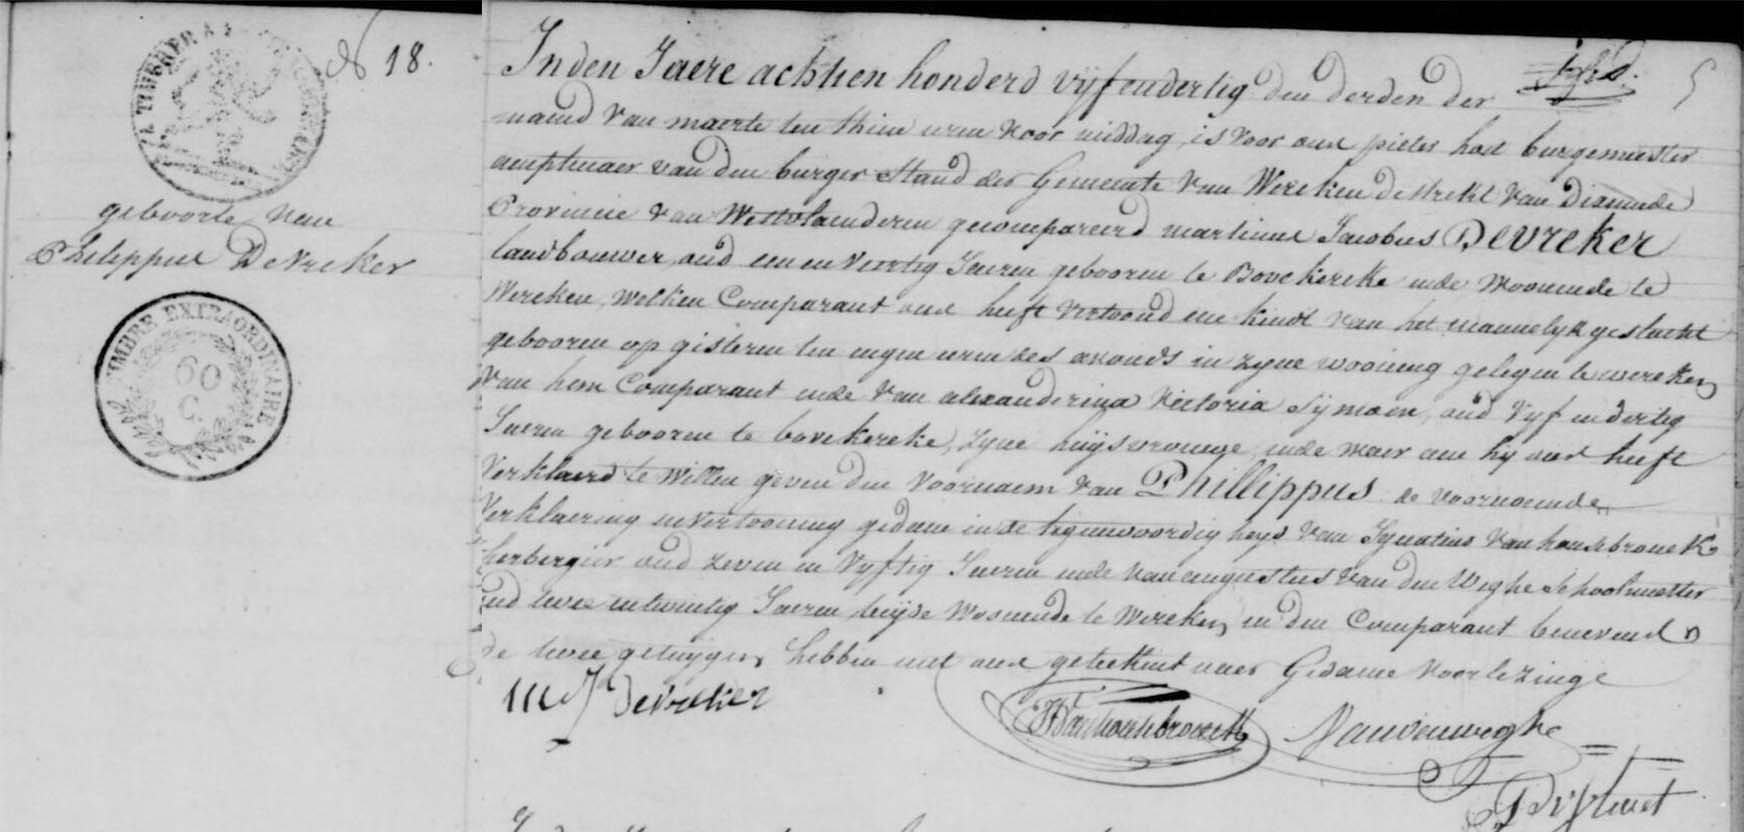 N 18.
geboorte van
Philippus DeVreker
TIMBRE EXTRAORDINAIRE
60
C
Inden Jaere achtien honderd vyfendertig den derden der
maend van maerte ten thien uren voor middag, is voor ons pieter burgemeester
amptenaer van den burger Stand der Gemeente van Wereken destrikt van Dixmude
Provincie van Westvlaenderen gecompareerd martinus Jacobus Devreker
landbouwer, oud een en veertig Jaeren gebooren te Bovekereke ende Woonende te
Wereken, welken Comparant ons heeft vertoond een kindt van het mannelyk geslacht
gebooren op gisteren ten negen uren des avonds in zyne wooning gelegen te wereken
van hem Comparant ende van alexanderina victoria Symoen, oud vyf en dertig
Jaeren gebooren te bovekereke, zyne huysvrouwe, ende waer aen hy ons heeft
Verklaerd te willen geven den voornaem van Phillippus de voornoemde
Verklaering en vertooning gedaen in de tegenwoordigheyd van Ignatius van houtebrouck
herbergier oud zeven en vyftig Jaeren ende van augustus van den Weghe schoolmeester
oud twee entwintig Jaeren, beyde Woonende te Wereken, en den Comparant benevens
de twee getuygen hebben met ons geteekent naer Gedaene voorlezinge
M J DeVreker
Vanhoutebrouck
Vandenweghe